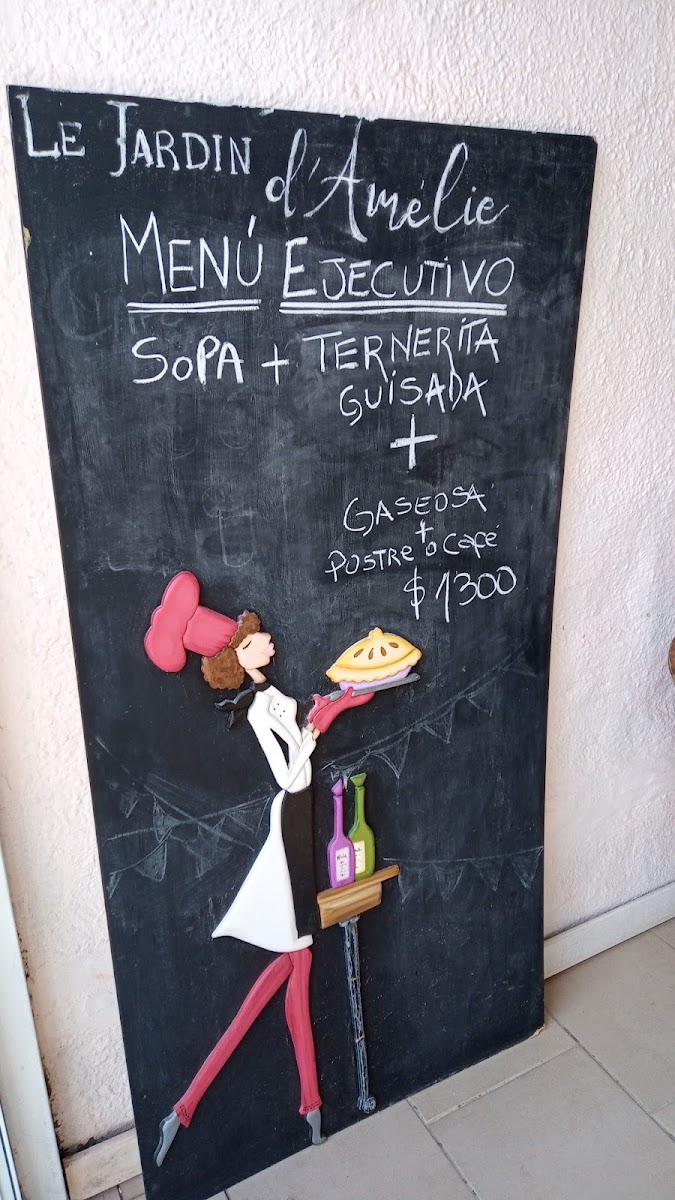 LE JARDIN d'Amélie
MENÚ EJECUTIVO
SOPA + TERNERITA
GUISADA
+
GASEOSA
+
POSTRE o CAFÉ
$1300